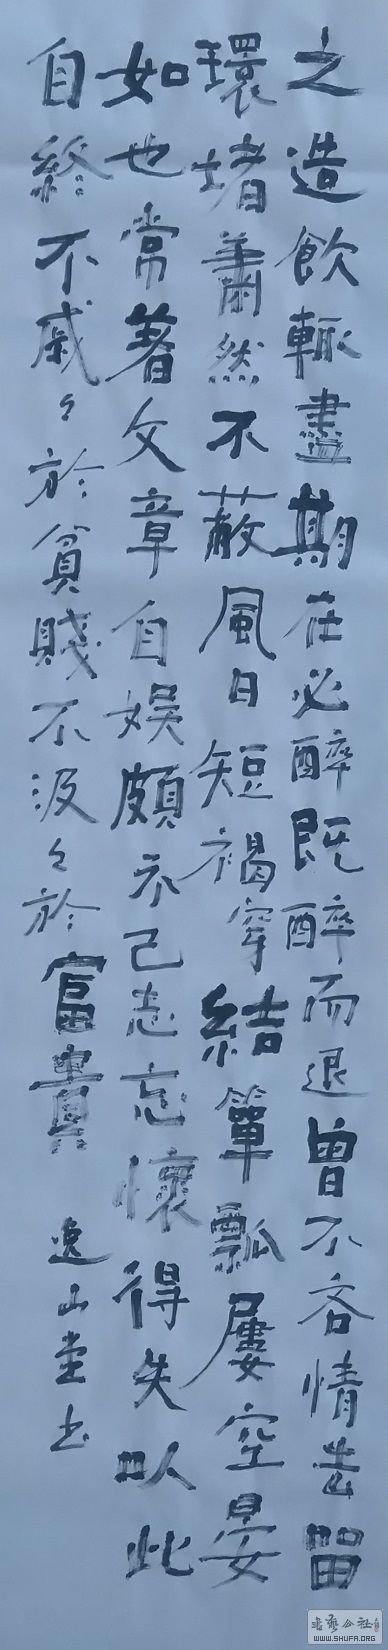 之造飲輒盡期在必醉既醉而退曾不吝情去留
環堵蕭然不蔽風日短褐穿結簞瓢屢空晏
如也常著文章自娛頗示己志忘懷得失以此
自終不戚々於貧賤不汲々於富貴 逸山堂书
书艺公社
WWW.SHUFA.ORG